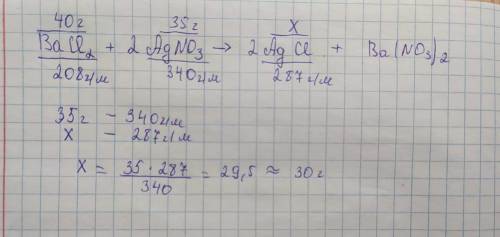 40г 35г X
BaCl2 + 2 AgNO3 → 2 AgCl + Ba(NO3)2
208г/м 340г/м 287г/м
35г - 340г/м
X - 287г/м
X = 35 · 287 / 340 = 29,5 ≈ 30г